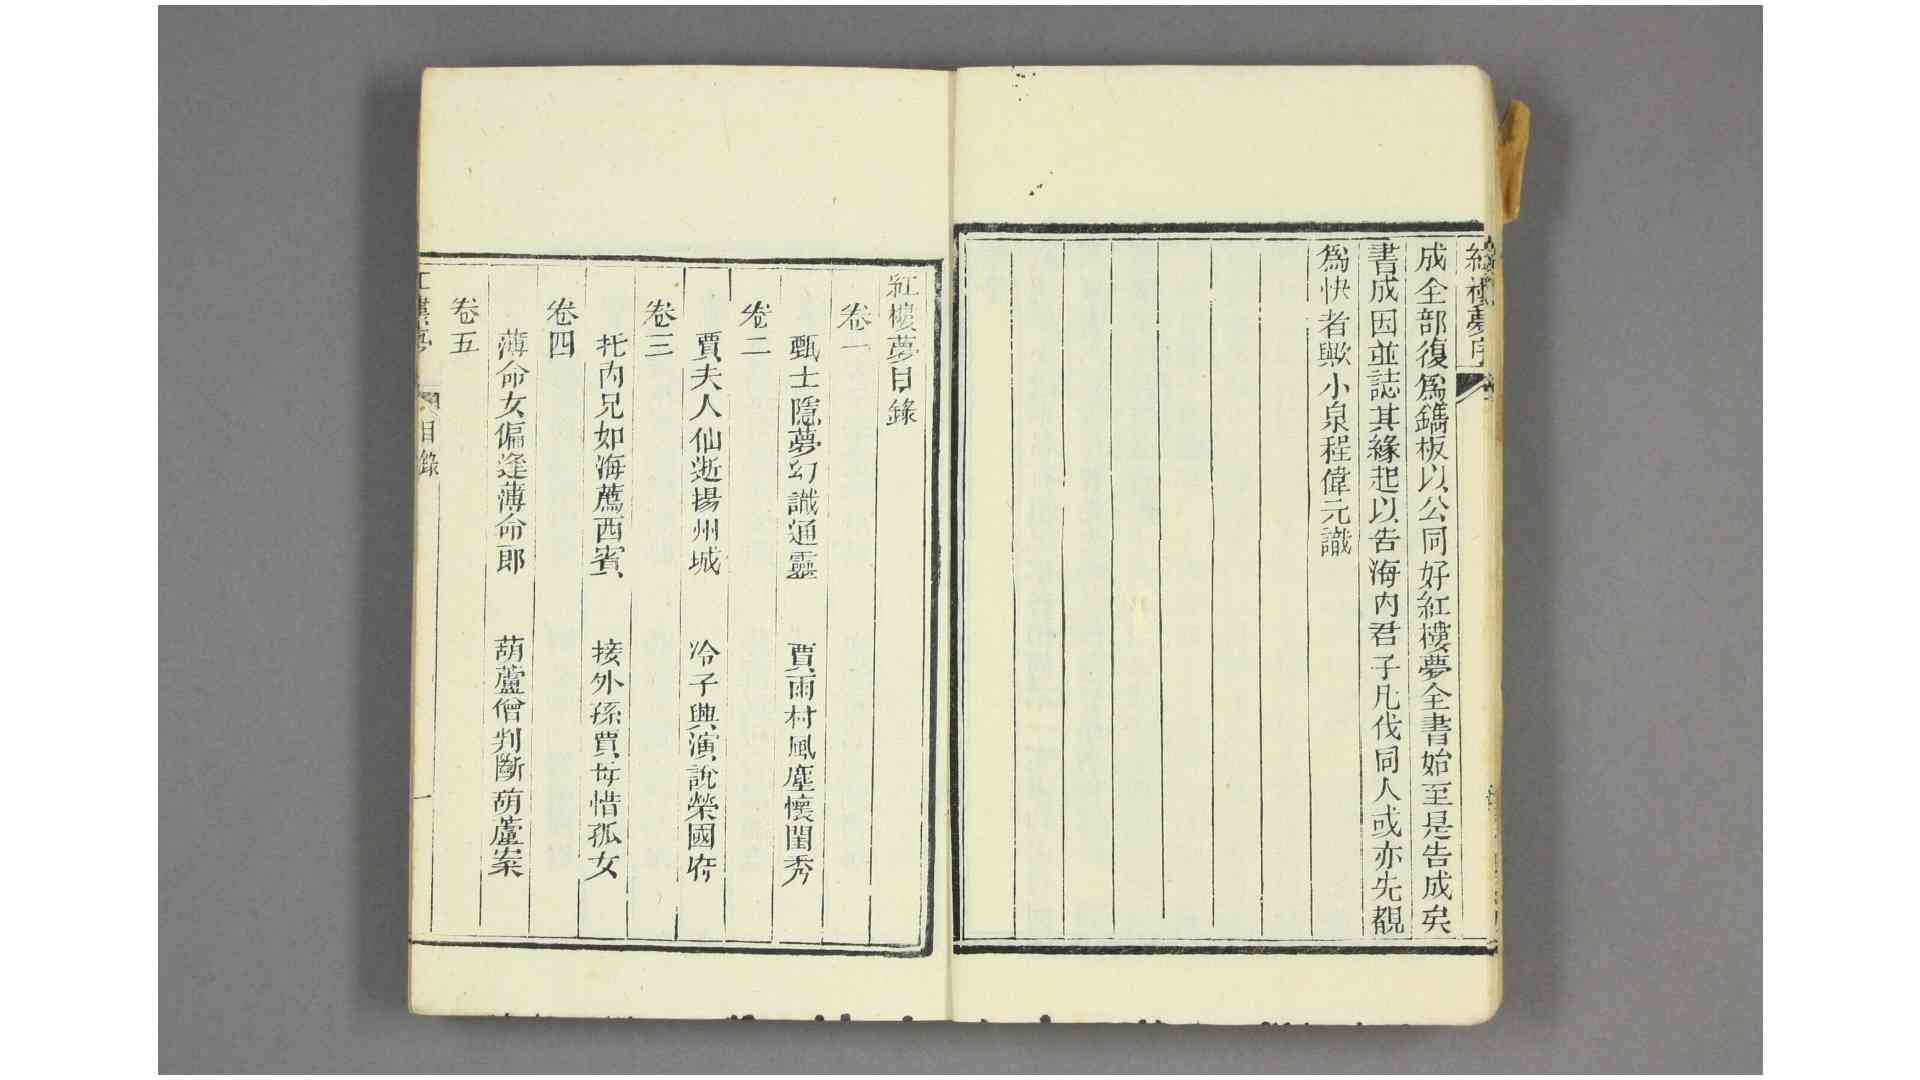 紅樓夢序
成全部復爲鐫板以公同好紅樓夢全書始至是告成矣
書成因並誌其緣起以告海內君子凡我同人或亦先覩
爲快者歟小泉程偉元識
紅樓夢目錄
卷一
甄士隱夢幻識通靈　賈雨村風塵懷閨秀
卷二
賈夫人仙逝揚州城　冷子興演說榮國府
卷三
托內兄如海薦西賓　接外孫賈母惜孤女
卷四
薄命女偏逢薄命郎　葫蘆僧判斷葫蘆案
卷五
紅樓夢　目錄　一